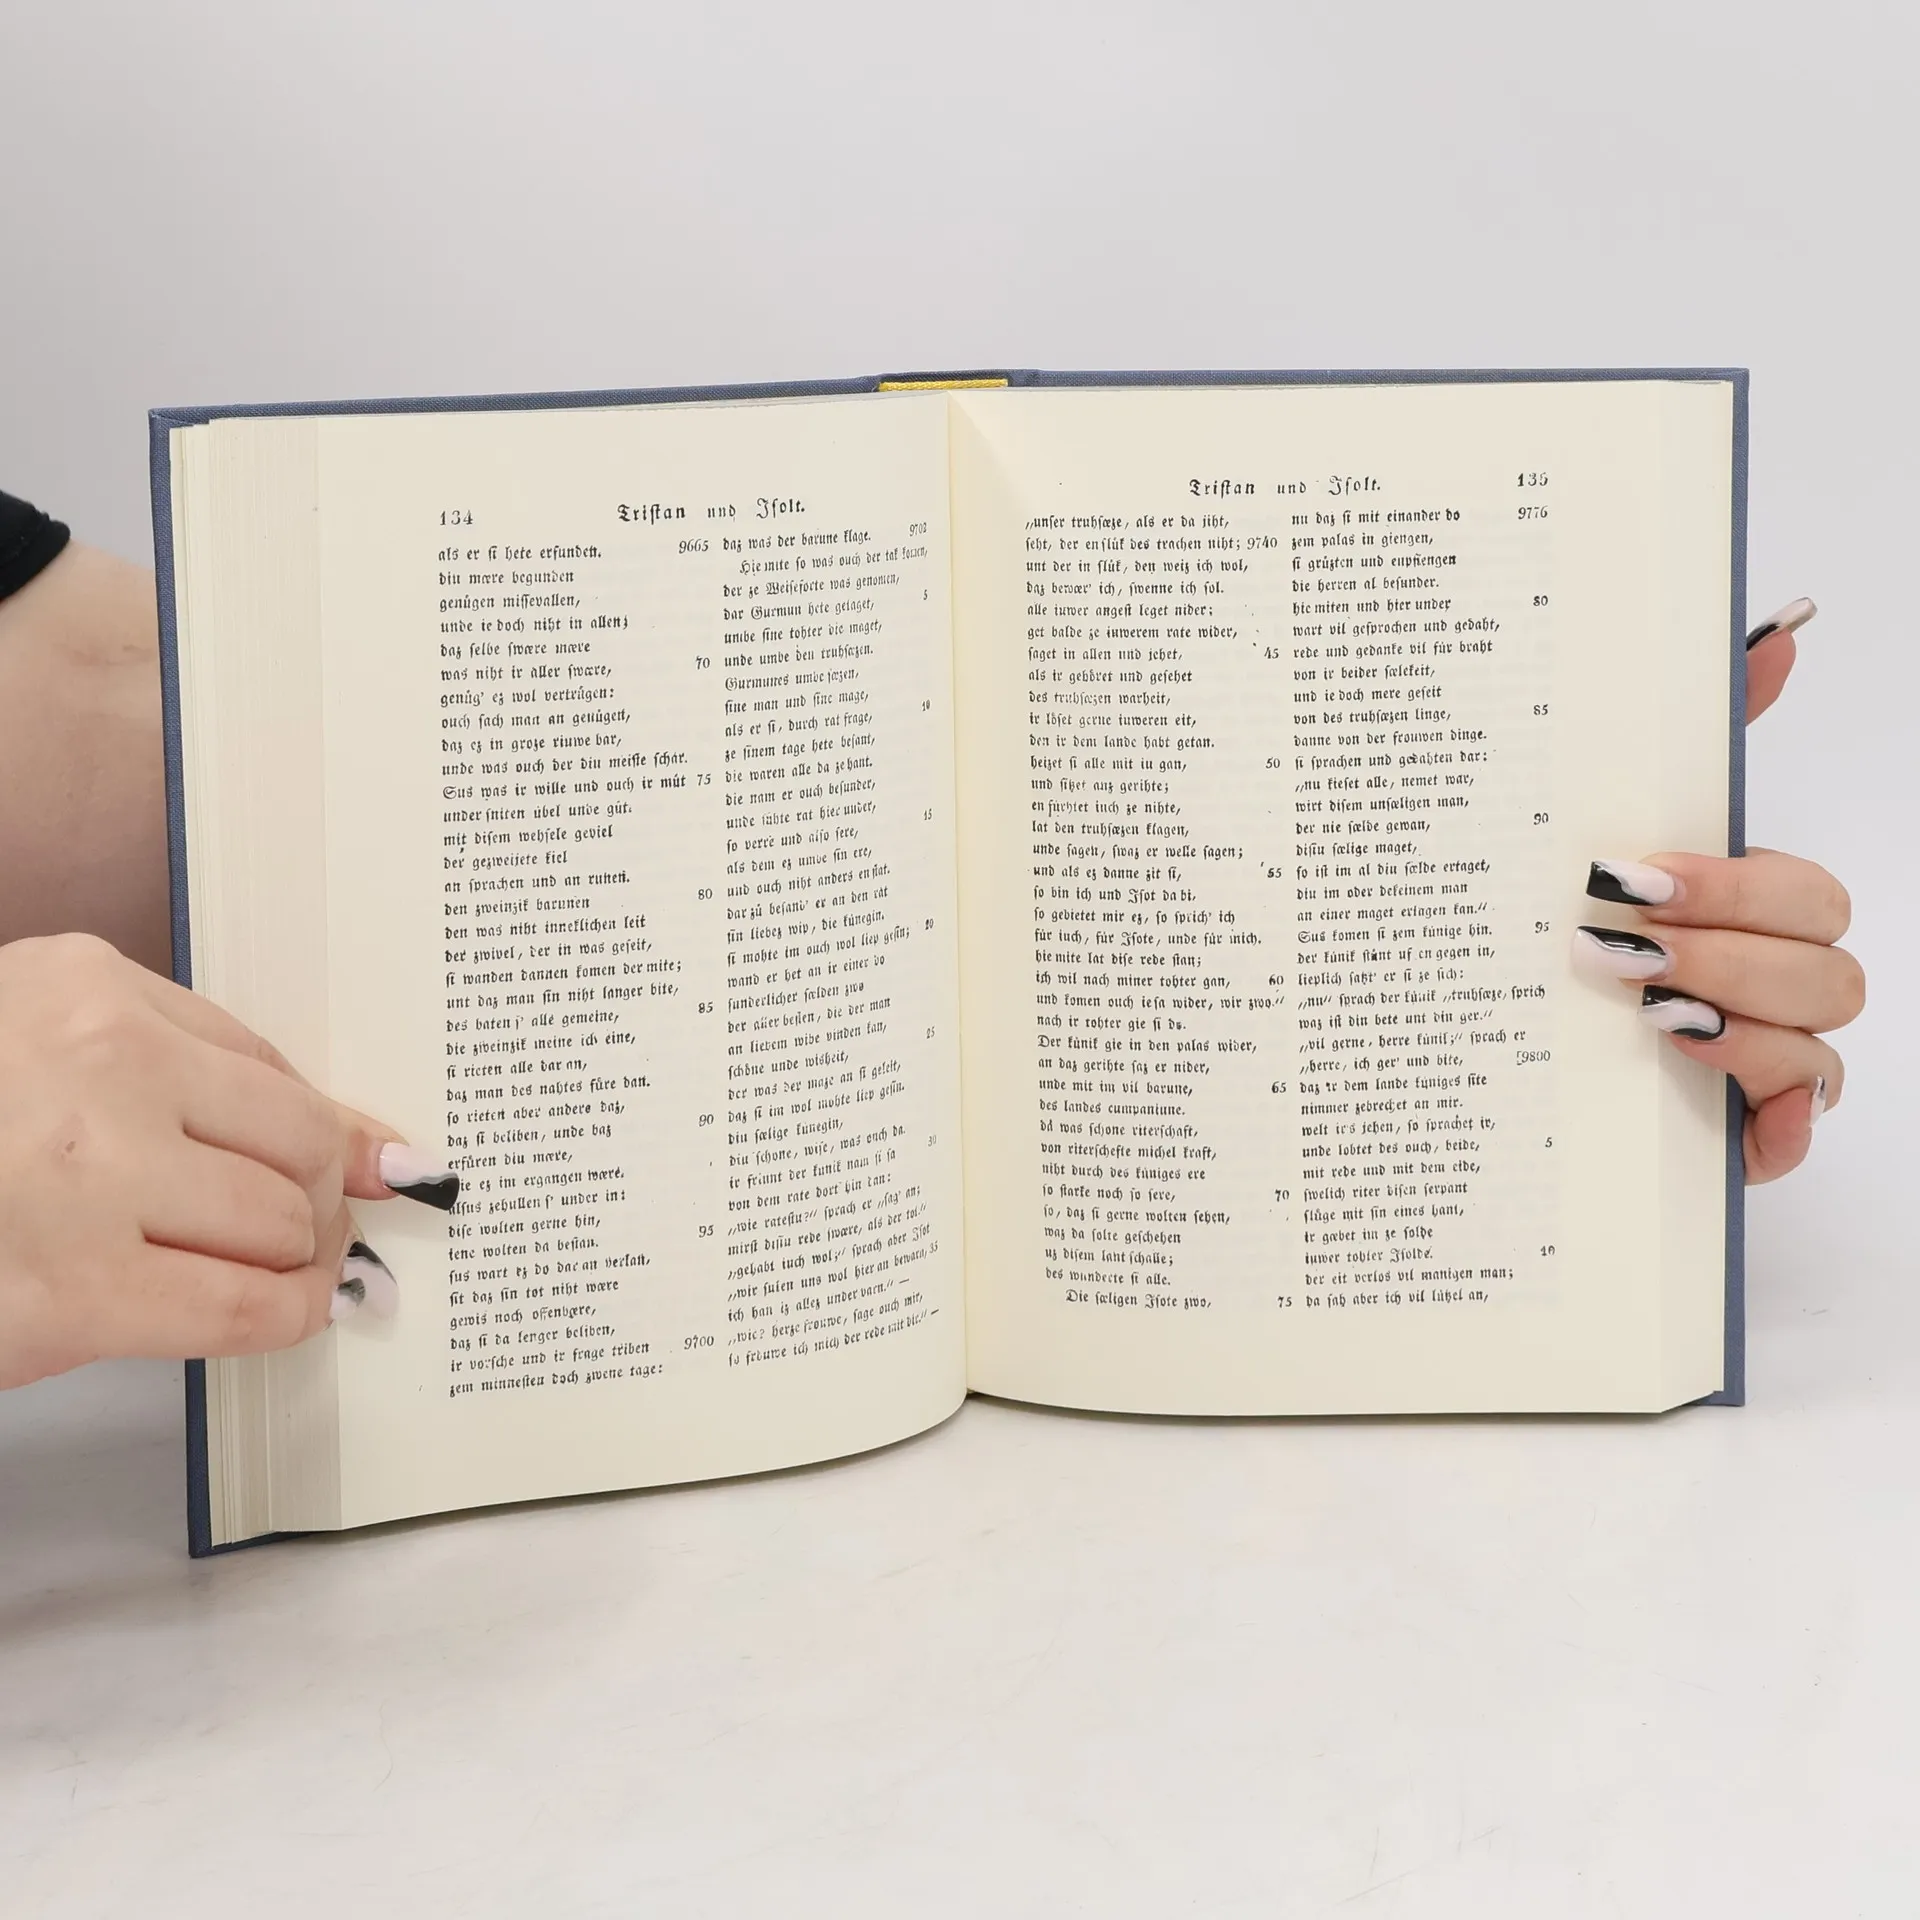 134 Tristan und Isolt.
als er si hete erfunden. 9665
diu mære begunden
genůgen missevallen,
unde ie doch niht in allen;
daz selbe swære mære
was niht ir aller swære, 70
genůg' ez wol vertrůgen:
ouch sach man an genůgen,
daz ez in groze riuwe bar,
unde was ouch der diu meiste schar.
Sus was ir wille und ouch ir můt 75
under sniten übel unde gůt.
mit disem wehsele geviel
der gezweijete kiel
an sprachen und an runen.
den zweinzik barunen 80
den was niht inneklichen leit
der zwivel, der in was geseit,
si wanden dannen komen der mite;
unt daz man sin niht langer bite,
des baten s' alle gemeine, 85
die zweinzik meine ich eine,
si rieten alle dar an,
daz man des nahtes fůre dan.
so rieten aber andere daz,
daz si beliben, unde baz 90
erfůren diu mære,
ie ez im ergangen wære.
alsus zehullen s' under in:
dise wolten gerne hin,
iene wolten da bestan. 95
sus wart ez do dar an verlan,
sit daz sin tot niht wære
gewis noch offenbære,
daz si da lenger beliben,
ir vorsche und ir frage triben 9700
zem minnesten doch zwene tage:
daz was der barune klage. 9702
Hie mite so was ouch der tak komen,
der ze Weisefocte was genomen,
dar Gurmun hete gelaget, 5
umbe sine tohter die maget,
unde umbe den truhsæzen.
Gurmunes umbe sæzen,
sine man und sine mage,
als er si, durch rat frage, 10
ze sinem tage hete besant,
die waren alle da ze hant.
die nam er ouch besunder,
unde sůhte rat hier under,
so verre und also sere, 15
als dem ez umbe sin ere,
und ouch niht anders en stat.
dar zů besand' er an den rat
sin liebez wip, die künegin.
si mohte im ouch wol liep gesin; 20
wand er het an ir einer do
sunderlicher sælden zwo
der aller besten, die der man
an liebem wibe vinden kan,
schöne unde wisheit, 25
der was der maze an si geleit,
daz si im wol mohte liep gesin.
diu sælige künegin,
diu schone, wise, was ouch da. 30
ir friunt der künik nam si sa
von dem rate dort hin dan:
„wie ratestu?“ sprach er „sag' an;
mirst disiu rede swære, als der tot.“
„gehabt iuch wol;“ sprach aber Isot
„wir suien uns wol hier an bewarn, 35
ich han iz allez under varn.“ —
„wie? herze frouwe, sage ouch mir,
so frouwe ich mich der rede mit dir.“ —
Tristan und Isolt. 135
„unser truhsæze, als er da jiht,
seht, der en slůk des trachen niht; 9740
unt der in slůk, den weiz ich wol,
daz bewær' ich, swenne ich sol.
alle iuwer angest leget nider;
get balde ze iuwerem rate wider,
saget in allen und jehet, 45
als ir gehöret und gesehet
des truhsæzen warheit,
ir löset gerne iuweren eit,
den ir dem lande habt getan.
heizet si alle mit iu gan, 50
und sitzet anz gerihte;
en fürhtet iuch ze nihte,
lat den truhsæzen klagen,
unde sagen, swaz er welle sagen;
und als ez danne zit si, 55
so bin ich und Isot da bi,
so gebietet mir ez, so sprich' ich
für iuch, für Isote, unde für mich.
hie mite lat dise rede stan;
ich wil nach miner tohter gan, 60
und komen ouch iesa wider, wir zwo.“
nach ir tohter gie si do.
Der künik gie in den palas wider,
an daz gerihte saz er nider,
unde mit im vil barune, 65
des landes cumpaniune.
da was schone riterschaft,
von riterschefte michel kraft,
niht durch des küniges ere
so starke noch so sere, 70
so, daz si gerne wolten sehen,
waz da solte geschehen
uz disem lant schalle;
des wunderte si alle.
Die sæligen Isote zwo, 75
nu daz si mit einander do 9776
zem palas in giengen,
si grůzten und enpfiengen
die herren al besunder.
hie miten und hier under 80
wart vil gesprochen und gedaht,
rede und gedanke vil für braht
von ir beider sælekeit,
und ie doch mere geseit
von des truhsæzen linge, 85
danne von der frouwen dinge.
si sprachen und gedahten dar:
„nu kieset alle, nemet war,
wirt disem unsæligen man,
der nie sælde gewan, 90
disiu sælige maget,
so ist im al diu sælde ertaget,
diu im oder dekeinem man
an einer maget ertagen kan.“
Sus komen si zem künige hin. 95
der künik stůnt uf en gegen in,
lieplich satzt' er si ze sich:
„nu“ sprach der künik „truhsæze, sprich
waz ist din bete unt din ger.“
„vil gerne, herre künik;“ sprach er
„herre, ich ger' und bite, [9800
daz ir dem lande küniges site
nimmer zebrechet an mir.
welt ir's jehen, so sprachet ir,
unde lobtet des ouch, beide, 5
mit rede und mit dem eide,
swelich riter disen serpant
slůge mit sin eines hant,
ir gæbet im ze solde
iuwer tohter Isolde. 10
der eit verlos vil manigen man;
da sah aber ich vil lützel an,